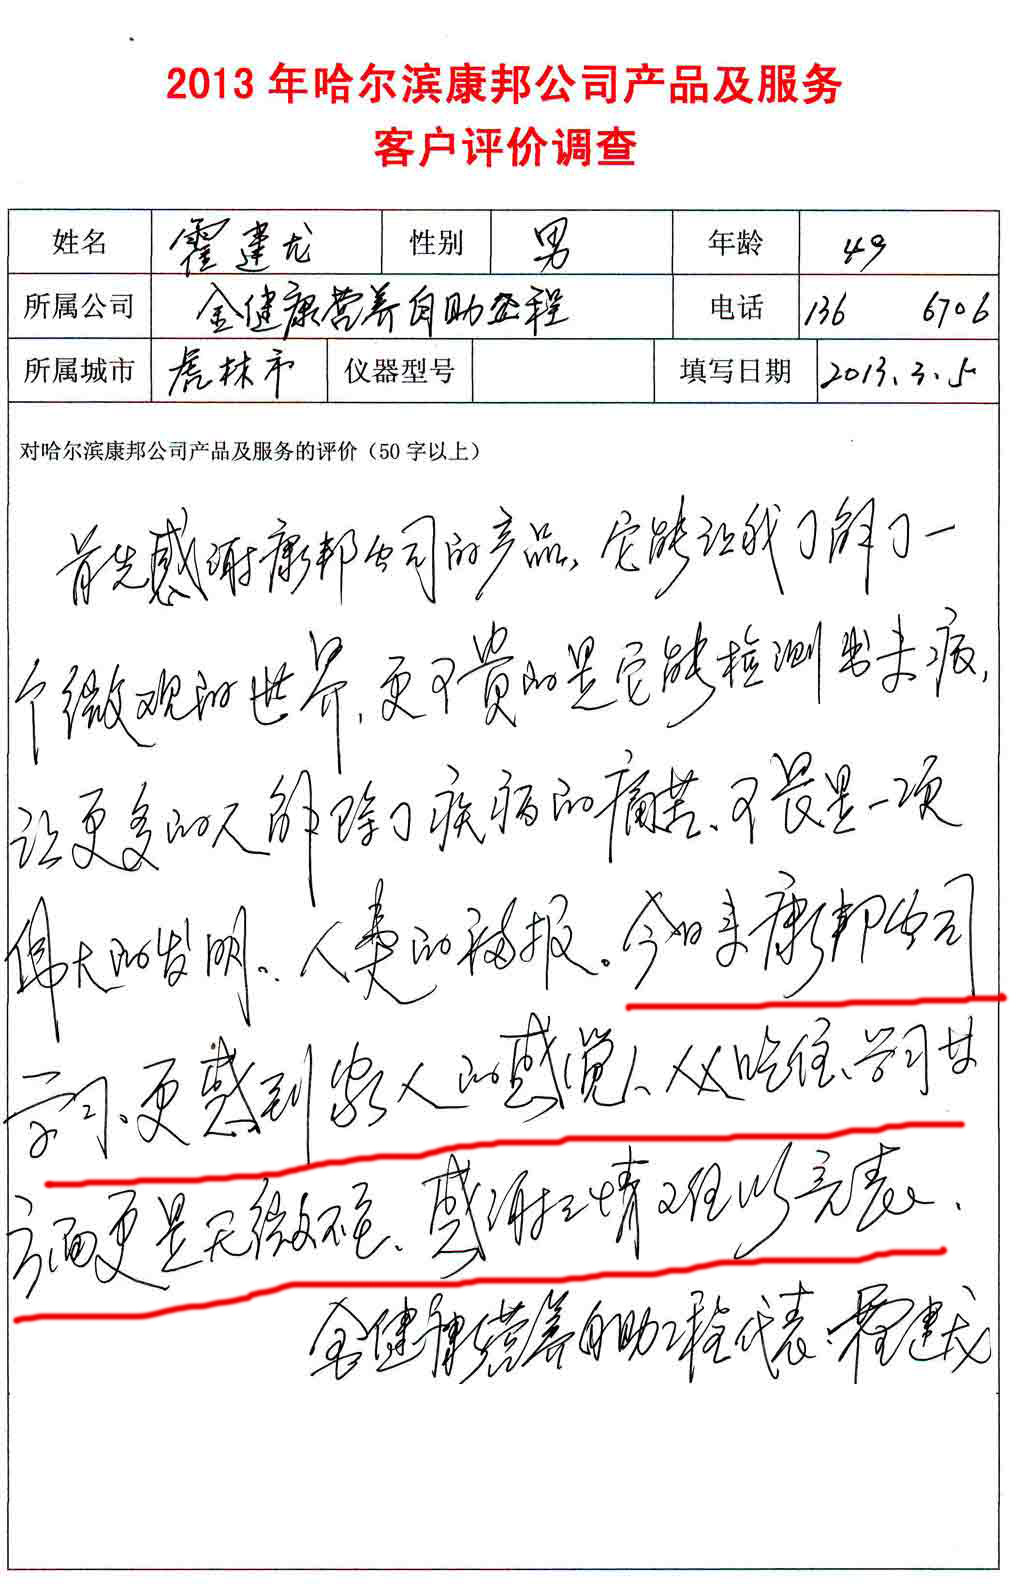 2013年哈尔滨康邦公司产品及服务
客户评价调查
姓名 霍建龙 性别 男 年龄 49
所属公司 全健康营养自助工程 电话 136 6706
所属城市 虎林市 仪器型号 填写日期 2013.3.5
对哈尔滨康邦公司产品及服务的评价（50字以上）
首先感谢康邦公司的产品，它能让我了解了一
个微观的世界，更可贵的是它能检测出未病，
让更多的人解除了疾病的痛苦、可畏是一项
伟大的发明、人类的福报。今日来康邦公司
学习、更感到家人的感觉、从吃住、学习等
方面更是无微不至、感谢之情难以言表、
全健康营养自助工程代表：霍建龙